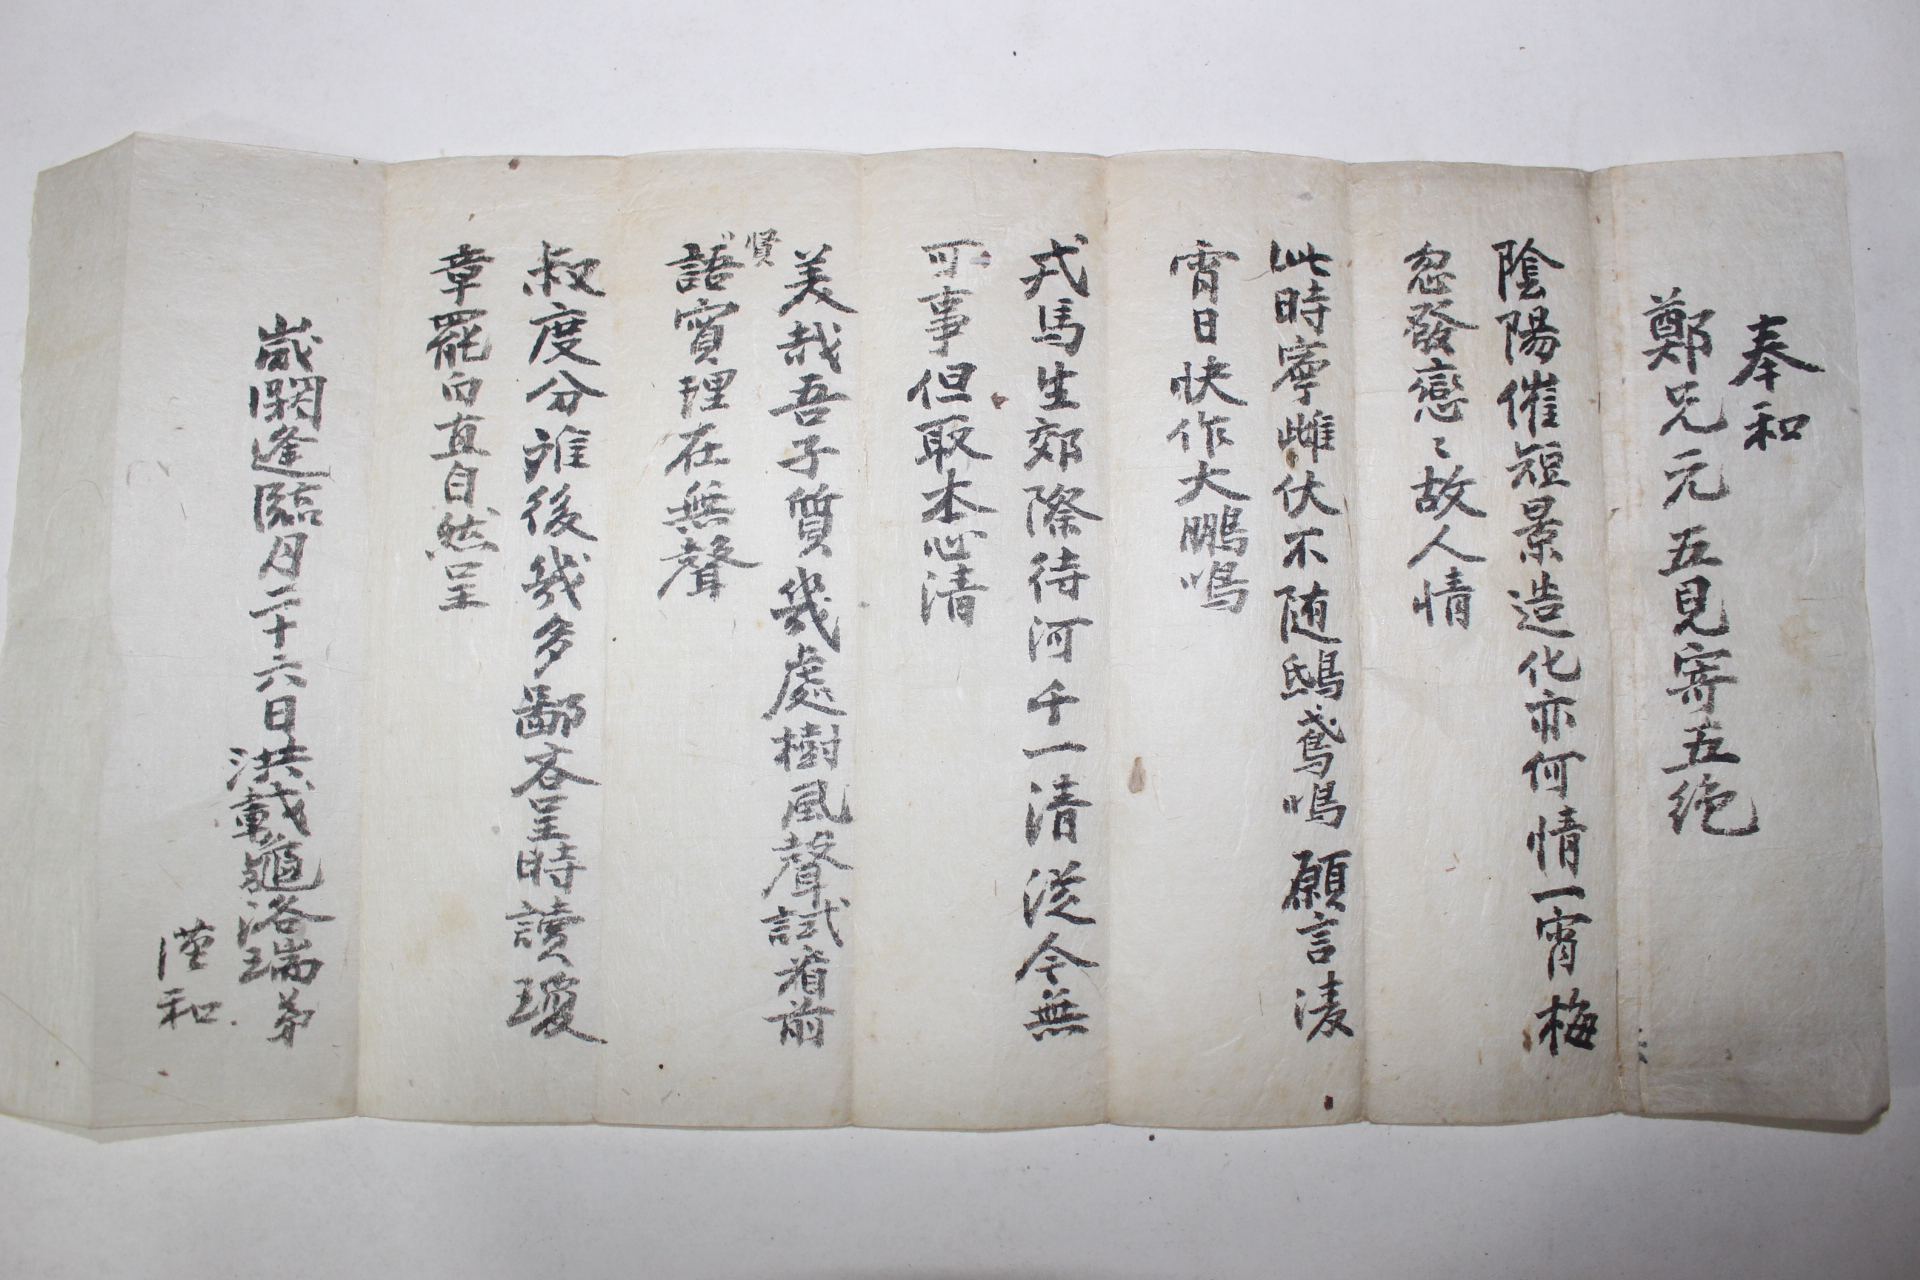 奉和
鄭兄元五見寄五絶
陰陽催短景造化亦何情一宵梅
忽發戀〻故人情
此時寧雌伏不随鴟鳶鳴願言凌
宵日快作大鵬鳴
戎馬生郊際待河千一清從今無
可事但取本心清
美哉吾子質幾處樹風聲試看前
賢
語實理在無聲
叔度分雅後幾多鄙吝呈時讀瓊
章罷白直自然呈
歲閼逢臨月二十六日洪載龜洛瑞弟
謹和